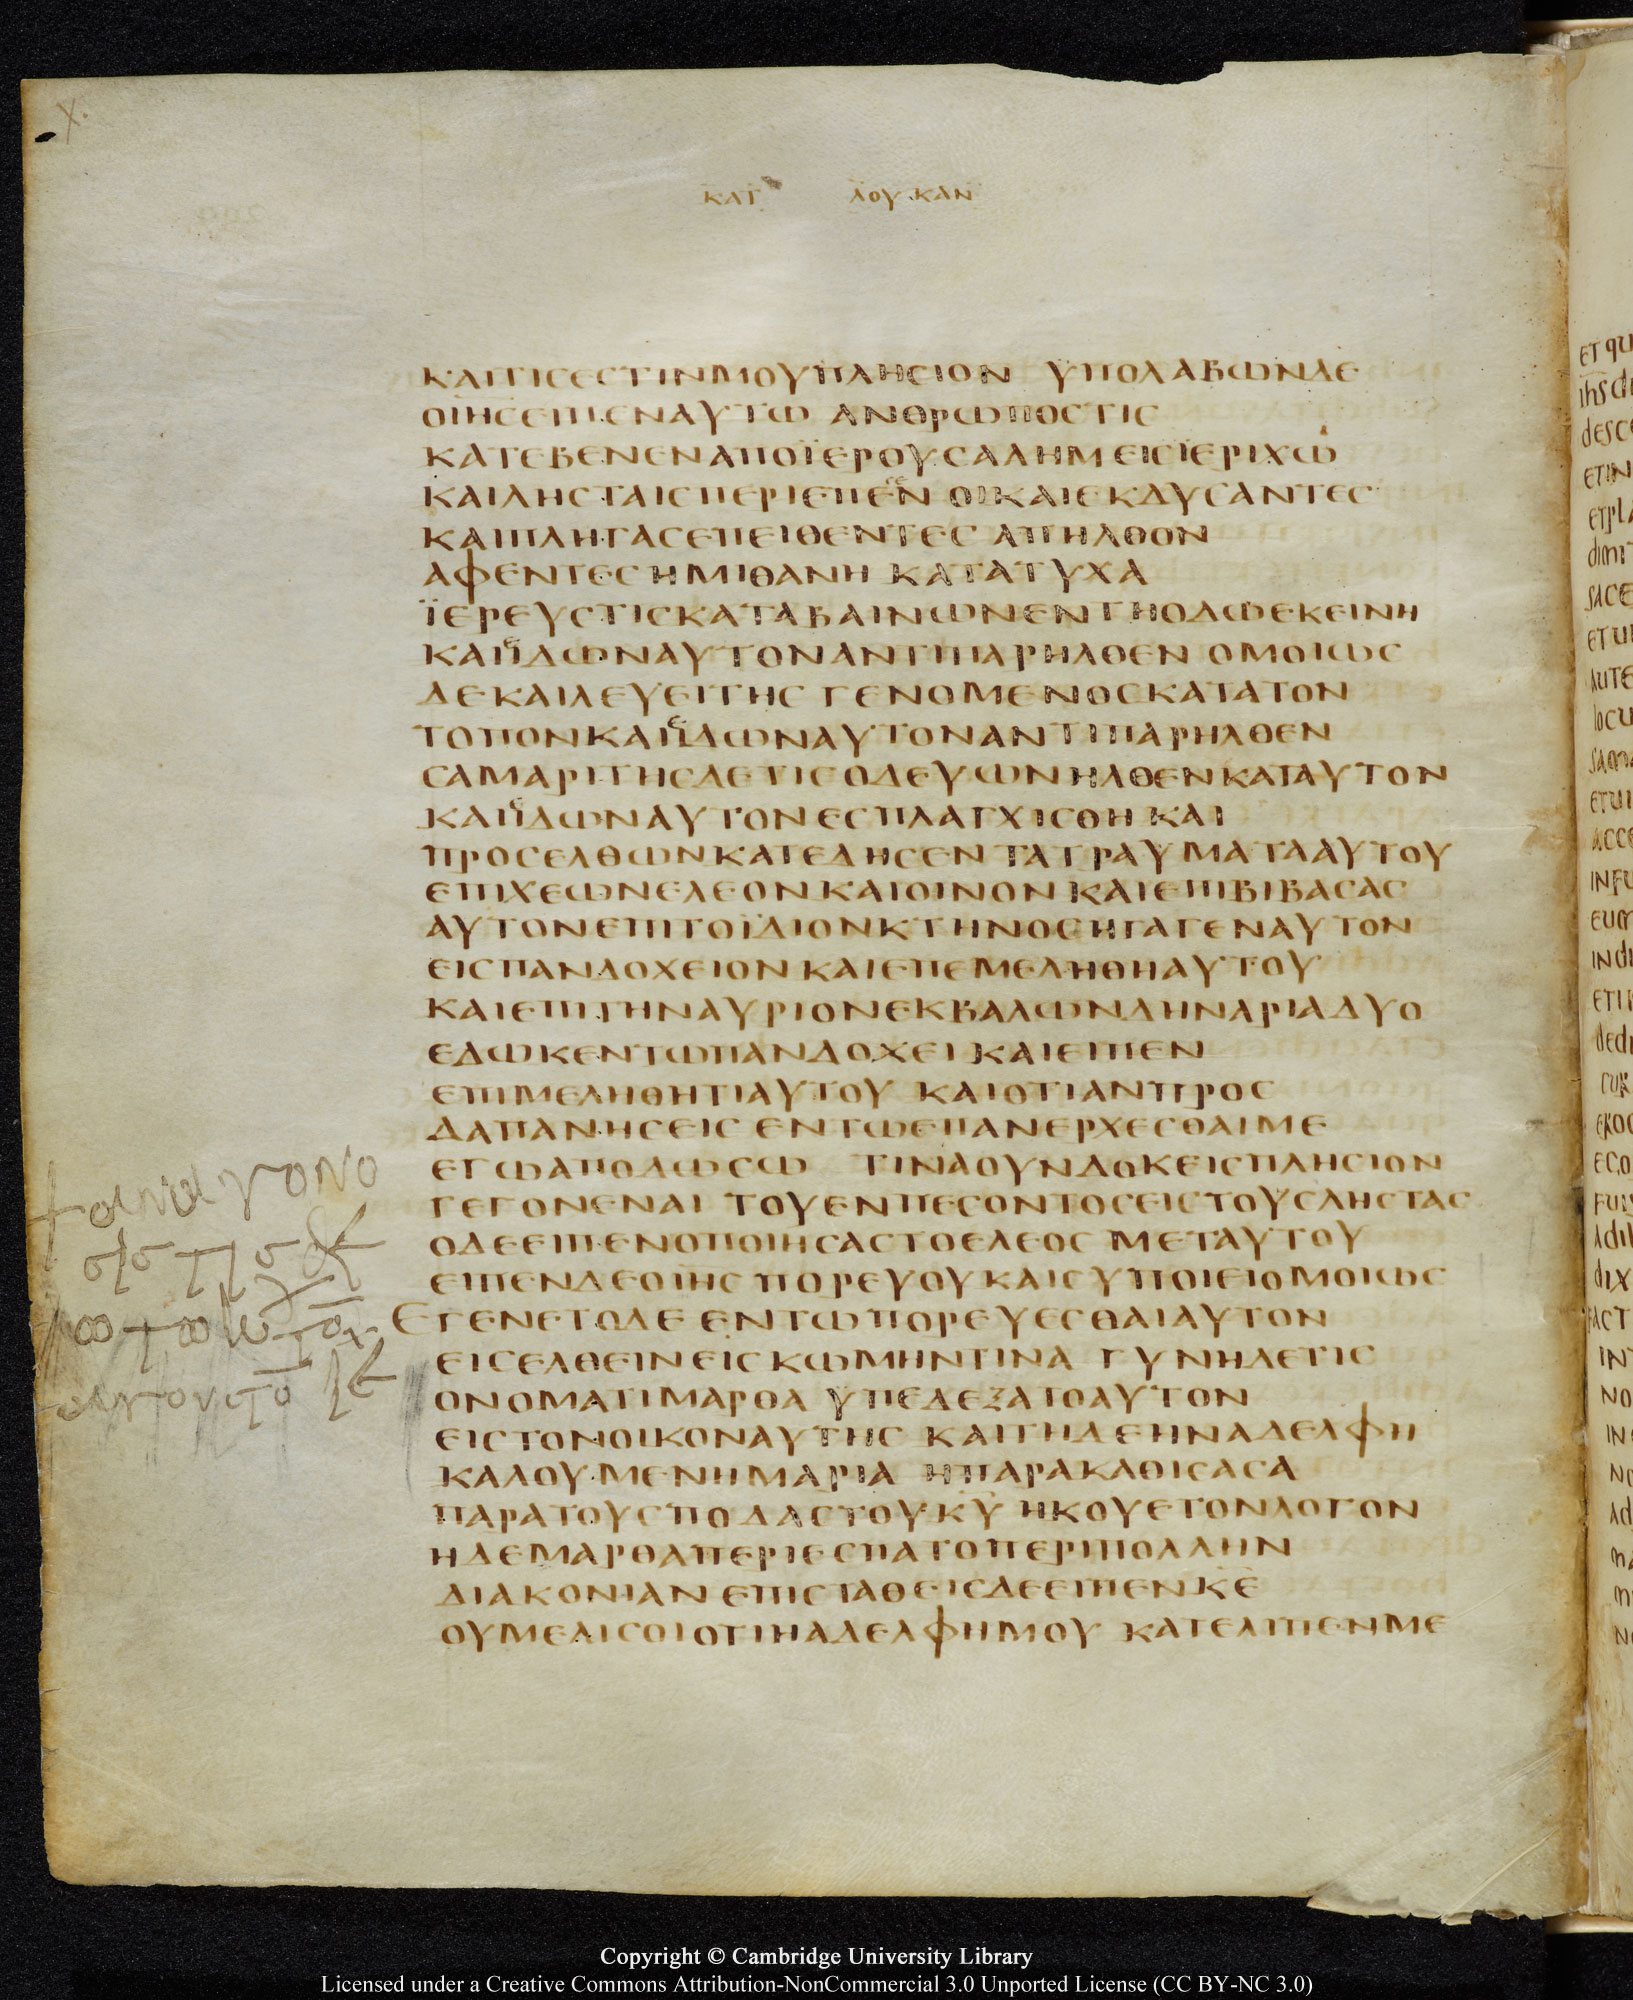 ΚΑΤ ΛΟΥΚΑΝ
ΚΑΙΤΙΣΕΣΤΙΝΜΟΥΠΛΗΣΙΟΝ ΫΠΟΛΑΒΩΝΔΕ
ΟΙΗΣΕΙΠΕΝΑΥΤΩ ΑΝΘΡΩΠΟΣΤΙΣ
ΚΑΤΕΒΕΝΕΝΑΠΟΪΕΡΟΥΣΑΛΗΜΕΙΣΪΕΡΙΧΩ
ΚΑΙΛΗΣΤΑΙΣΠΕΡΙΕΠΕΣΕΝ ΟΙΚΑΙΕΚΔΥΣΑΝΤΕΣ
ΚΑΙΠΛΗΓΑΣΕΠΕΙΘΕΝΤΕΣ ΑΠΗΛΘΟΝ
ΑΦΕΝΤΕΣΗΜΙΘΑΝΗ ΚΑΤΑΤΥΧΑ
ΪΕΡΕΥΣΤΙΣΚΑΤΑΒΑΙΝΩΝΕΝΤΗΟΔΩΕΚΕΙΝΗ
ΚΑΙΪΔΩΝΑΥΤΟΝΑΝΤΙΠΑΡΗΛΘΕΝ ΟΜΟΙΩΣ
ΔΕΚΑΙΛΕΥΕΙΤΗΣ ΓΕΝΟΜΕΝΟΣΚΑΤΑΤΟΝ
ΤΟΠΟΝΚΑΙΪΔΩΝΑΥΤΟΝΑΝΤΙΠΑΡΗΛΘΕΝ
ΣΑΜΑΡΙΤΗΣΔΕΤΙΣΟΔΕΥΩΝΗΛΘΕΝΚΑΤΑΥΤΟΝ
ΚΑΙΪΔΩΝΑΥΤΟΝΕΣΠΛΑΓΧΙΣΘΗ ΚΑΙ
ΠΡΟΣΕΛΘΩΝΚΑΤΕΔΗΣΕΝΤΑΤΡΑΥΜΑΤΑΑΥΤΟΥ
ΕΠΙΧΕΩΝΕΛΕΟΝΚΑΙΟΙΝΟΝ ΚΑΙΕΠΙΒΙΒΑΣΑΣ
ΑΥΤΟΝΕΠΙΤΟΪΔΙΟΝΚΤΗΝΟΣΗΓΑΓΕΝΑΥΤΟΝ
ΕΙΣΠΑΝΔΟΧΕΙΟΝΚΑΙΕΠΕΜΕΛΗΘΗΑΥΤΟΥ
ΚΑΙΕΠΙΤΗΝΑΥΡΙΟΝΕΚΒΑΛΩΝΔΗΝΑΡΙΑΔΥΟ
ΕΔΩΚΕΝΤΩΠΑΝΔΟΧΕΙΚΑΙΕΙΠΕΝ
ΕΠΙΜΕΛΗΘΗΤΙΑΥΤΟΥ ΚΑΙΟΤΙΑΝΠΡΟΣ
ΔΑΠΑΝΗΣΕΙΣ ΕΝΤΩΕΠΑΝΕΡΧΕΣΘΑΙΜΕ
ΕΓΩΑΠΟΔΩΣΩ ΤΙΝΑΟΥΝΔΟΚΕΙΣΠΛΗΣΙΟΝ
ΓΕΓΟΝΕΝΑΙ ΤΟΥΕΝΠΕΣΟΝΤΟΣΕΙΣΤΟΥΣΛΗΣΤΑΣ
ΟΔΕΕΙΠΕΝΟΠΟΙΗΣΑΣΤΟΕΛΕΟΣ ΜΕΤΑΥΤΟΥ
ΕΙΠΕΝΔΕΟΙΗΣ ΠΟΡΕΥΟΥΚΑΙΣΥΠΟΙΕΙΟΜΟΙΩΣ
ΕΓΕΝΕΤΟΔΕ ΕΝΤΩΠΟΡΕΥΕΣΘΑΙΑΥΤΟΝ
ΕΙΣΕΛΘΕΙΝΕΙΣΚΩΜΗΝΤΙΝΑ ΓΥΝΗΔΕΤΙΣ
ΟΝΟΜΑΤΙΜΑΡΘΑ ΫΠΕΔΕΞΑΤΟΑΥΤΟΝ
ΕΙΣΤΟΝΟΙΚΟΝΑΥΤΗΣ ΚΑΙΤΗΔΕΗΝΑΔΕΛΦΗ
ΚΑΛΟΥΜΕΝΗΜΑΡΙΑ ΗΠΑΡΑΚΑΘΙΣΑΣΑ
ΠΑΡΑΤΟΥΣΠΟΔΑΣΤΟΥΚΥ ΗΚΟΥΕΤΟΝΛΟΓΟΝ
ΗΔΕΜΑΡΘΑΠΕΡΙΕΣΠΑΤΟΠΕΡΙΠΟΛΛΗΝ
ΔΙΑΚΟΝΙΑΝΕΠΙΣΤΑΘΕΙΣΔΕΕΙΠΕΝΚΕ
ΟΥΜΕΛΙΣΟΙΟΤΙΗΑΔΕΛΦΗΜΟΥ ΚΑΤΕΛΙΠΕΝΜΕ
Copyright © Cambridge University Library
Licensed under a Creative Commons Attribution-NonCommercial 3.0 Unported License (CC BY-NC 3.0)